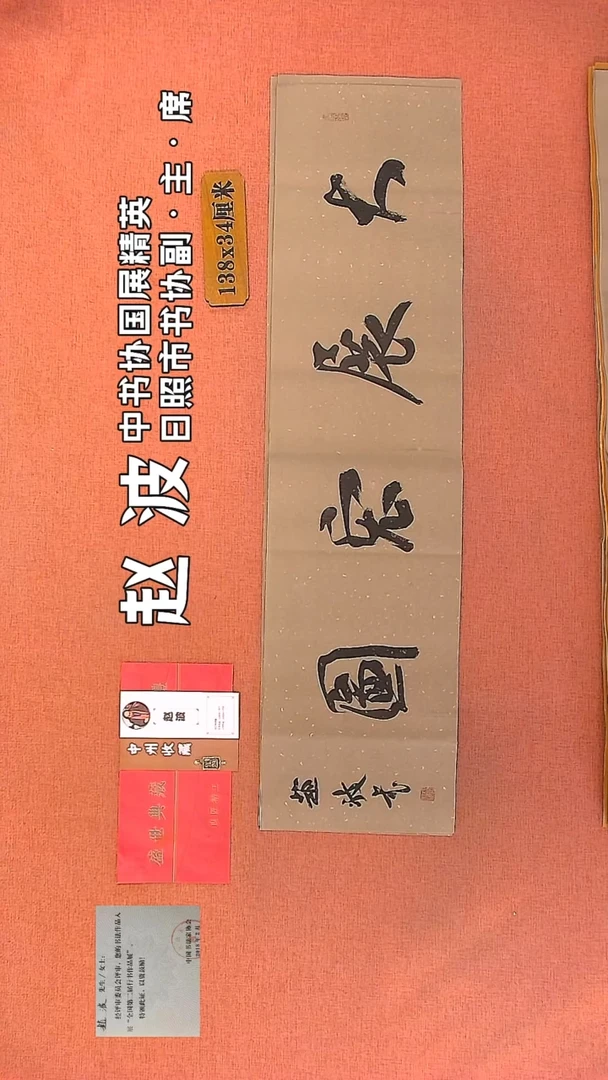 赵波
中书协国展精英
日照市书协副·主·席
138x34厘米
大展宏圖
赵波书
赵波
中州收藏
盛世典藏
赵波 先生/女士:
经评审委员会评审,您的书法作品入
“全国第二届行书作品展”,
特颁此证,以资鼓励!
中国书法家协会